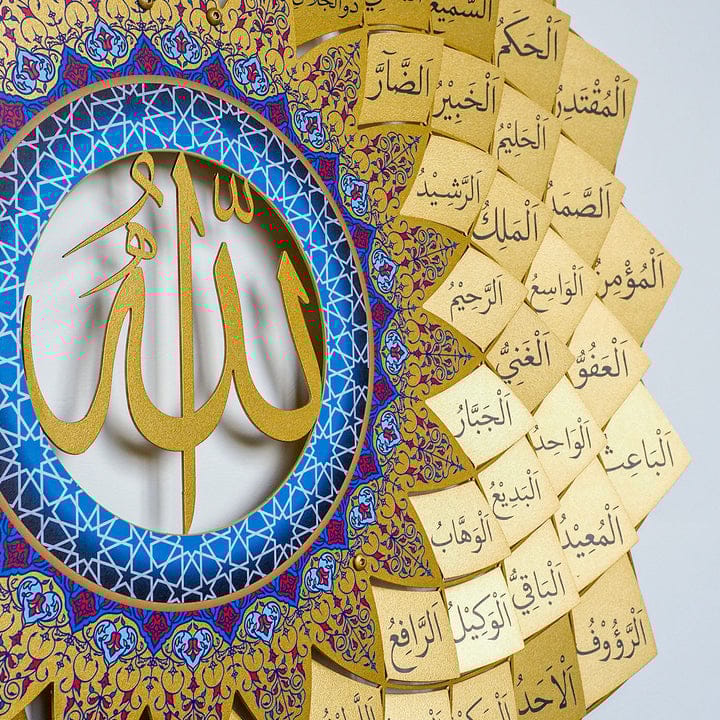 الله
السَّمِيعُ
اَلْحَكَمُ
اَلضَّآرُّ
اَلْخَبِيْرُ
اَلْمُقْتَدِرُ
اَلْحَلِيْمُ
اَلرَّشِيْدُ
اَلْمَلِكُ
اَلصَّمَدُ
اَلرَّحِيْمُ
اَلْوَاسِعُ
اَلْمُؤْمِنُ
اَلْغَنِيُّ
اَلْعَفُوُّ
اَلْجَبَّارُ
اَلْوَاحِدُ
اَلْبَاعِثُ
اَلْبَدِيْعُ
اَلْوَهَّابُ
اَلْمُعِيْدُ
اَلْبَاقِيُّ
اَلْوَكِيْلُ
اَلرَّافِعُ
اَلرَّؤُوْفُ
اَلْاَحَدُ